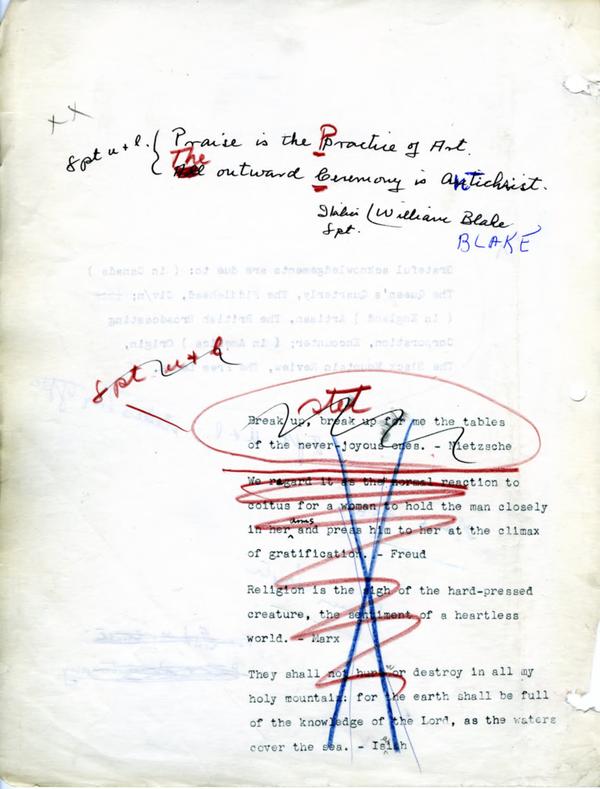 xx
8pt u + l. { Praise is the Practice of Art.
The outward Ceremony is Antichrist.
Italics (William Blake
8pt.
BLAKE
Grateful acknowledgements are due to: ( in Canada )
The Queen's Quarterly, The Fiddlehead, Civ/n:
( in England ) Artisan, The British Broadcasting
Corporation, Encounter; ( in America ) Origin,
The Black Mountain Review, The Free
8pt. u + l
stet
Break up, break up for me the tables
of the never-joyous ones. - Nietzsche
We regard it as the normal reaction to
coitus for a woman to hold the man closely
in her arms and press him to her at the climax
of gratification. - Freud
Religion is the sigh of the hard-pressed
creature, the sentiment of a heartless
world. - Marx
They shall not hurt or destroy in all my
holy mountain: for the earth shall be full
of the knowledge of the Lord, as the waters
cover the sea. - Isaiah